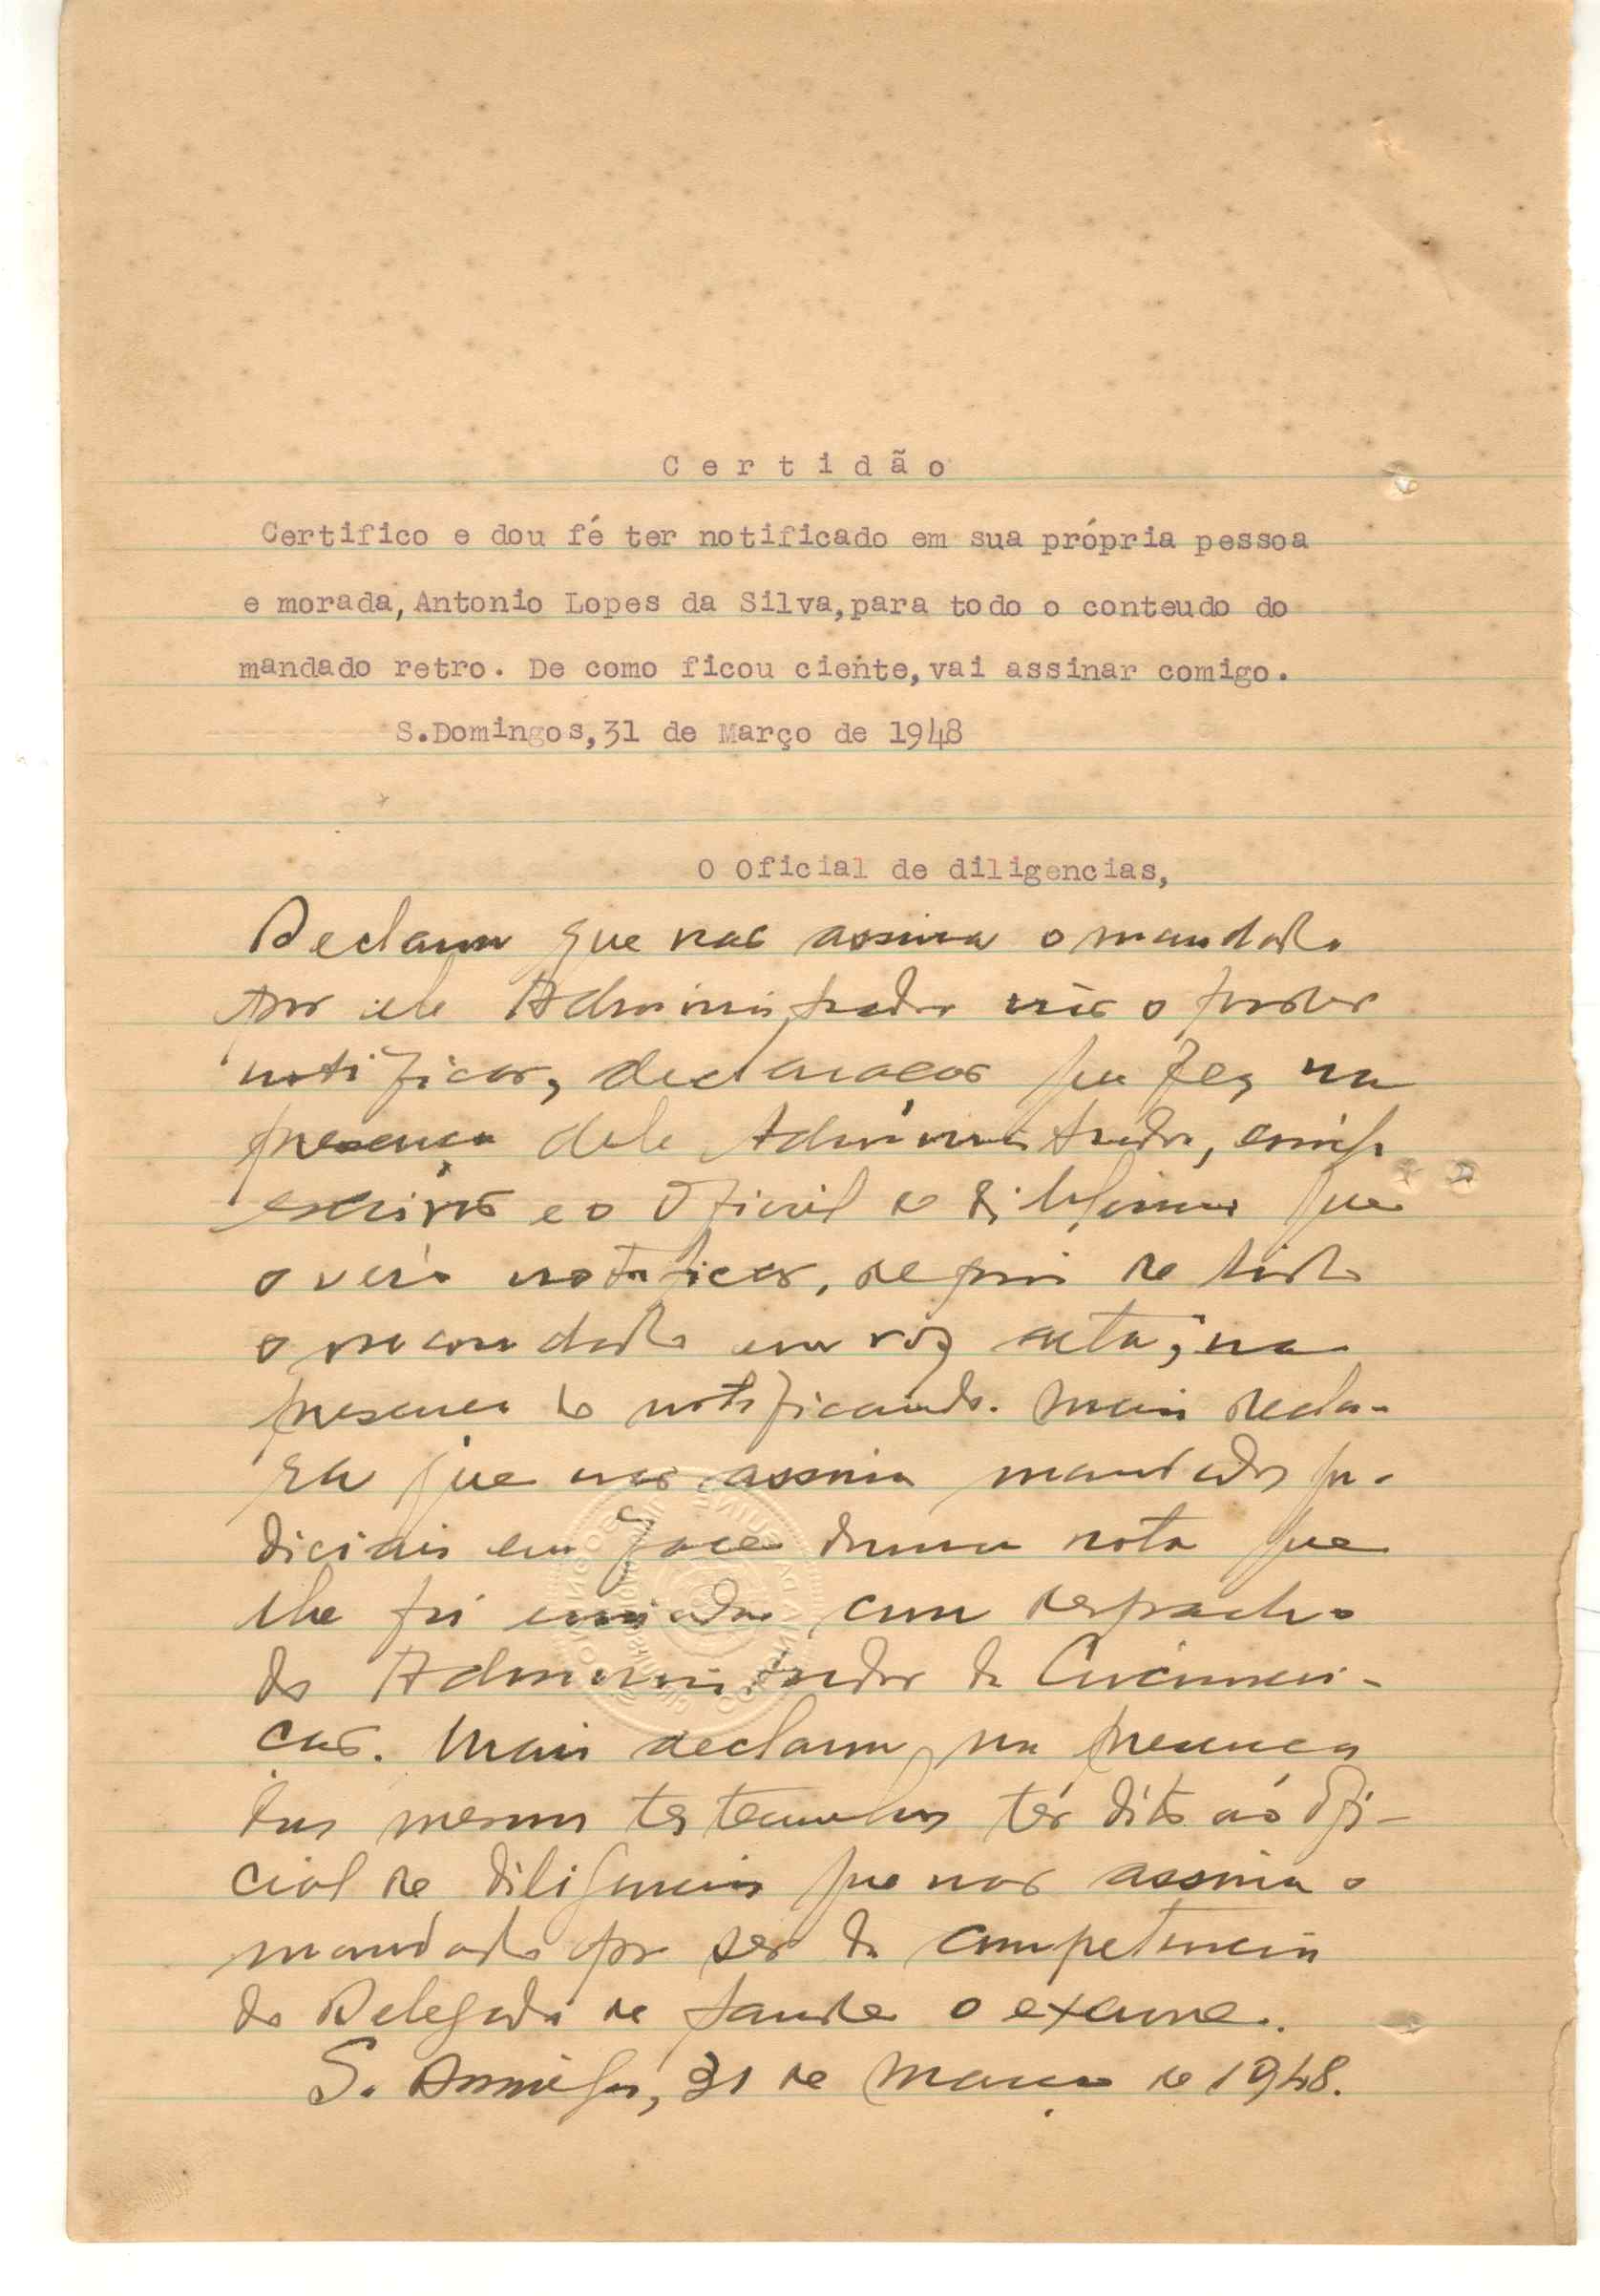 Certidão
Certifico e dou fé ter notificado em sua própria pessoa
e morada, Antonio Lopes da Silva, para todo o conteudo do
mandado retro. De como ficou ciente, vai assinar comigo.
S.Domingos, 31 de Março de 1948
O Oficial de diligencias,
Declarou que não assina o mandado
por ele Administrador não o poder
notificar, declaração que fez na
presença dele Administrador, comigo
escrivão e o Oficial de diligencias que
o veio notificar, depois de lido
o mandado em voz alta, na
presença do notificando. Mais decla-
ra que não assina mandados ju-
diciais em face duma nota que
lhe foi enviada com despacho
do Administrador da Circunscri-
ção. Mais declarou, na presença
das mesmas testemunhas ter dito aó Ofi-
cial de diligencias que não assina o
mandado por ser da competencia
do Delegado de Saude o exame.
S. Domingos, 31 de Março de 1948.